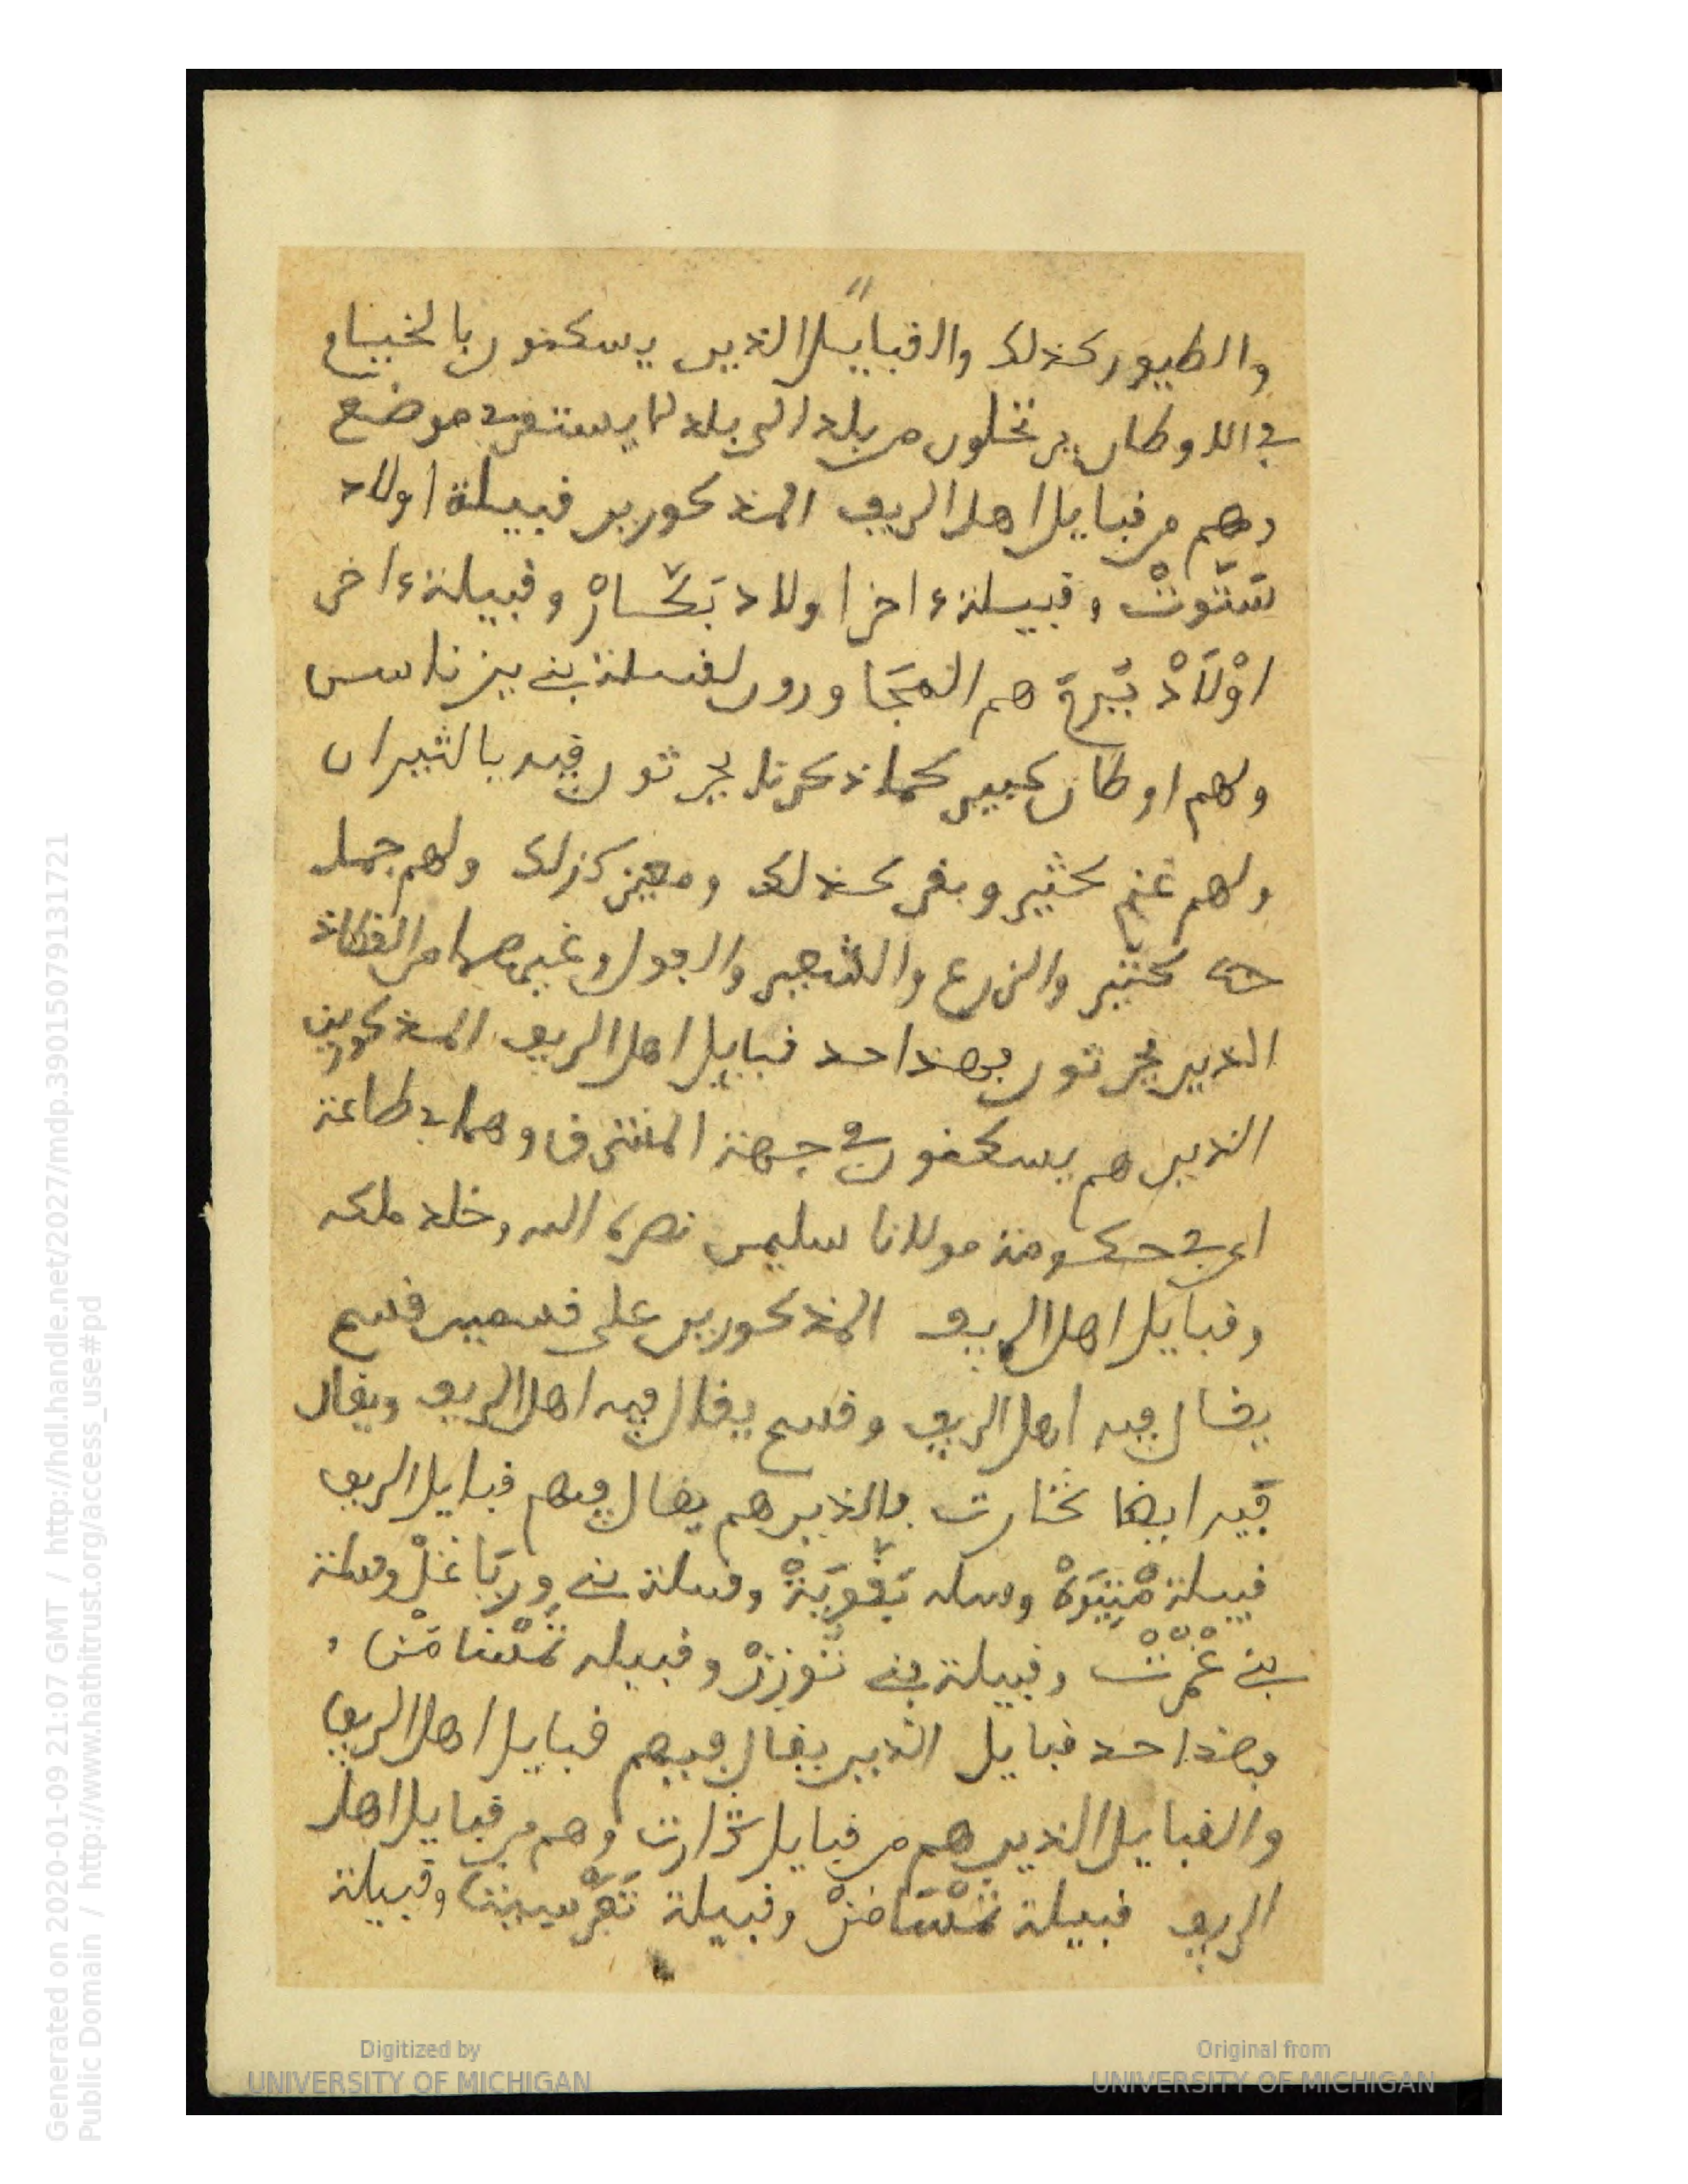 والطيور كذلك والقبايل الذين يسكنون بالخيام
في الاوطان يرتحلون من بلد الى بلد لا يستقر في موضع
وهم من قبايل اهل الريف المذكورين قبيلة اولاد
سَتّوتْ وقبيلة ءاخر اولاد بَكّارْ وقبيلة ءاخر
اوْلَادْ هم المجَاورون لقبيلة بني يزناسن
ولهم اوطان كبير كما ذكرنا يحرثون فيه بالثيران
ولهم غنم كثير وبقر كذلك ومعيز كذلك ولهم جمل
كثير والزرع والشعير والفول وغيرهما من القطاني
الذين يحرثون فهذا حد قبايل اهل الريف المذكورين
الذين هم يسكنون في جهة المشرق وهما في طاعة
اي في حكومة مولانا سليمن نصره الله وخلد ملكه
وقبايل اهل الريف المذكورين على قسمين قسم
يقال فيه اهل الريف وقسم يقال فيه اهل الريف ويقال
فيه ايضا فالذين هم يقال فيهم قبايل الريف
قبيلة وقبيلة بَقّويَةْ وقبيلة بني وريَاغَلْ وقبيلة
بني عْمْرْتْ وقبيلة بني تُوزِرْ وقبيلة تَمْسَامَنْ و
فهذا حد قبايل الذين يقال فيهم قبايل اهل الريف
والقبايل الذين هم من قبايل وهم من قبايل اهل
الريف قبيلة وقبيلة وقبيلة
Digitized by
UNIVERSITY OF MICHIGAN
Original from
UNIVERSITY OF MICHIGAN
Generated on 2020-01-09 21:07 GMT / http://hdl.handle.net/2027/mdp.39015079131721
Public Domain / http://www.hathitrust.org/access_use#pd